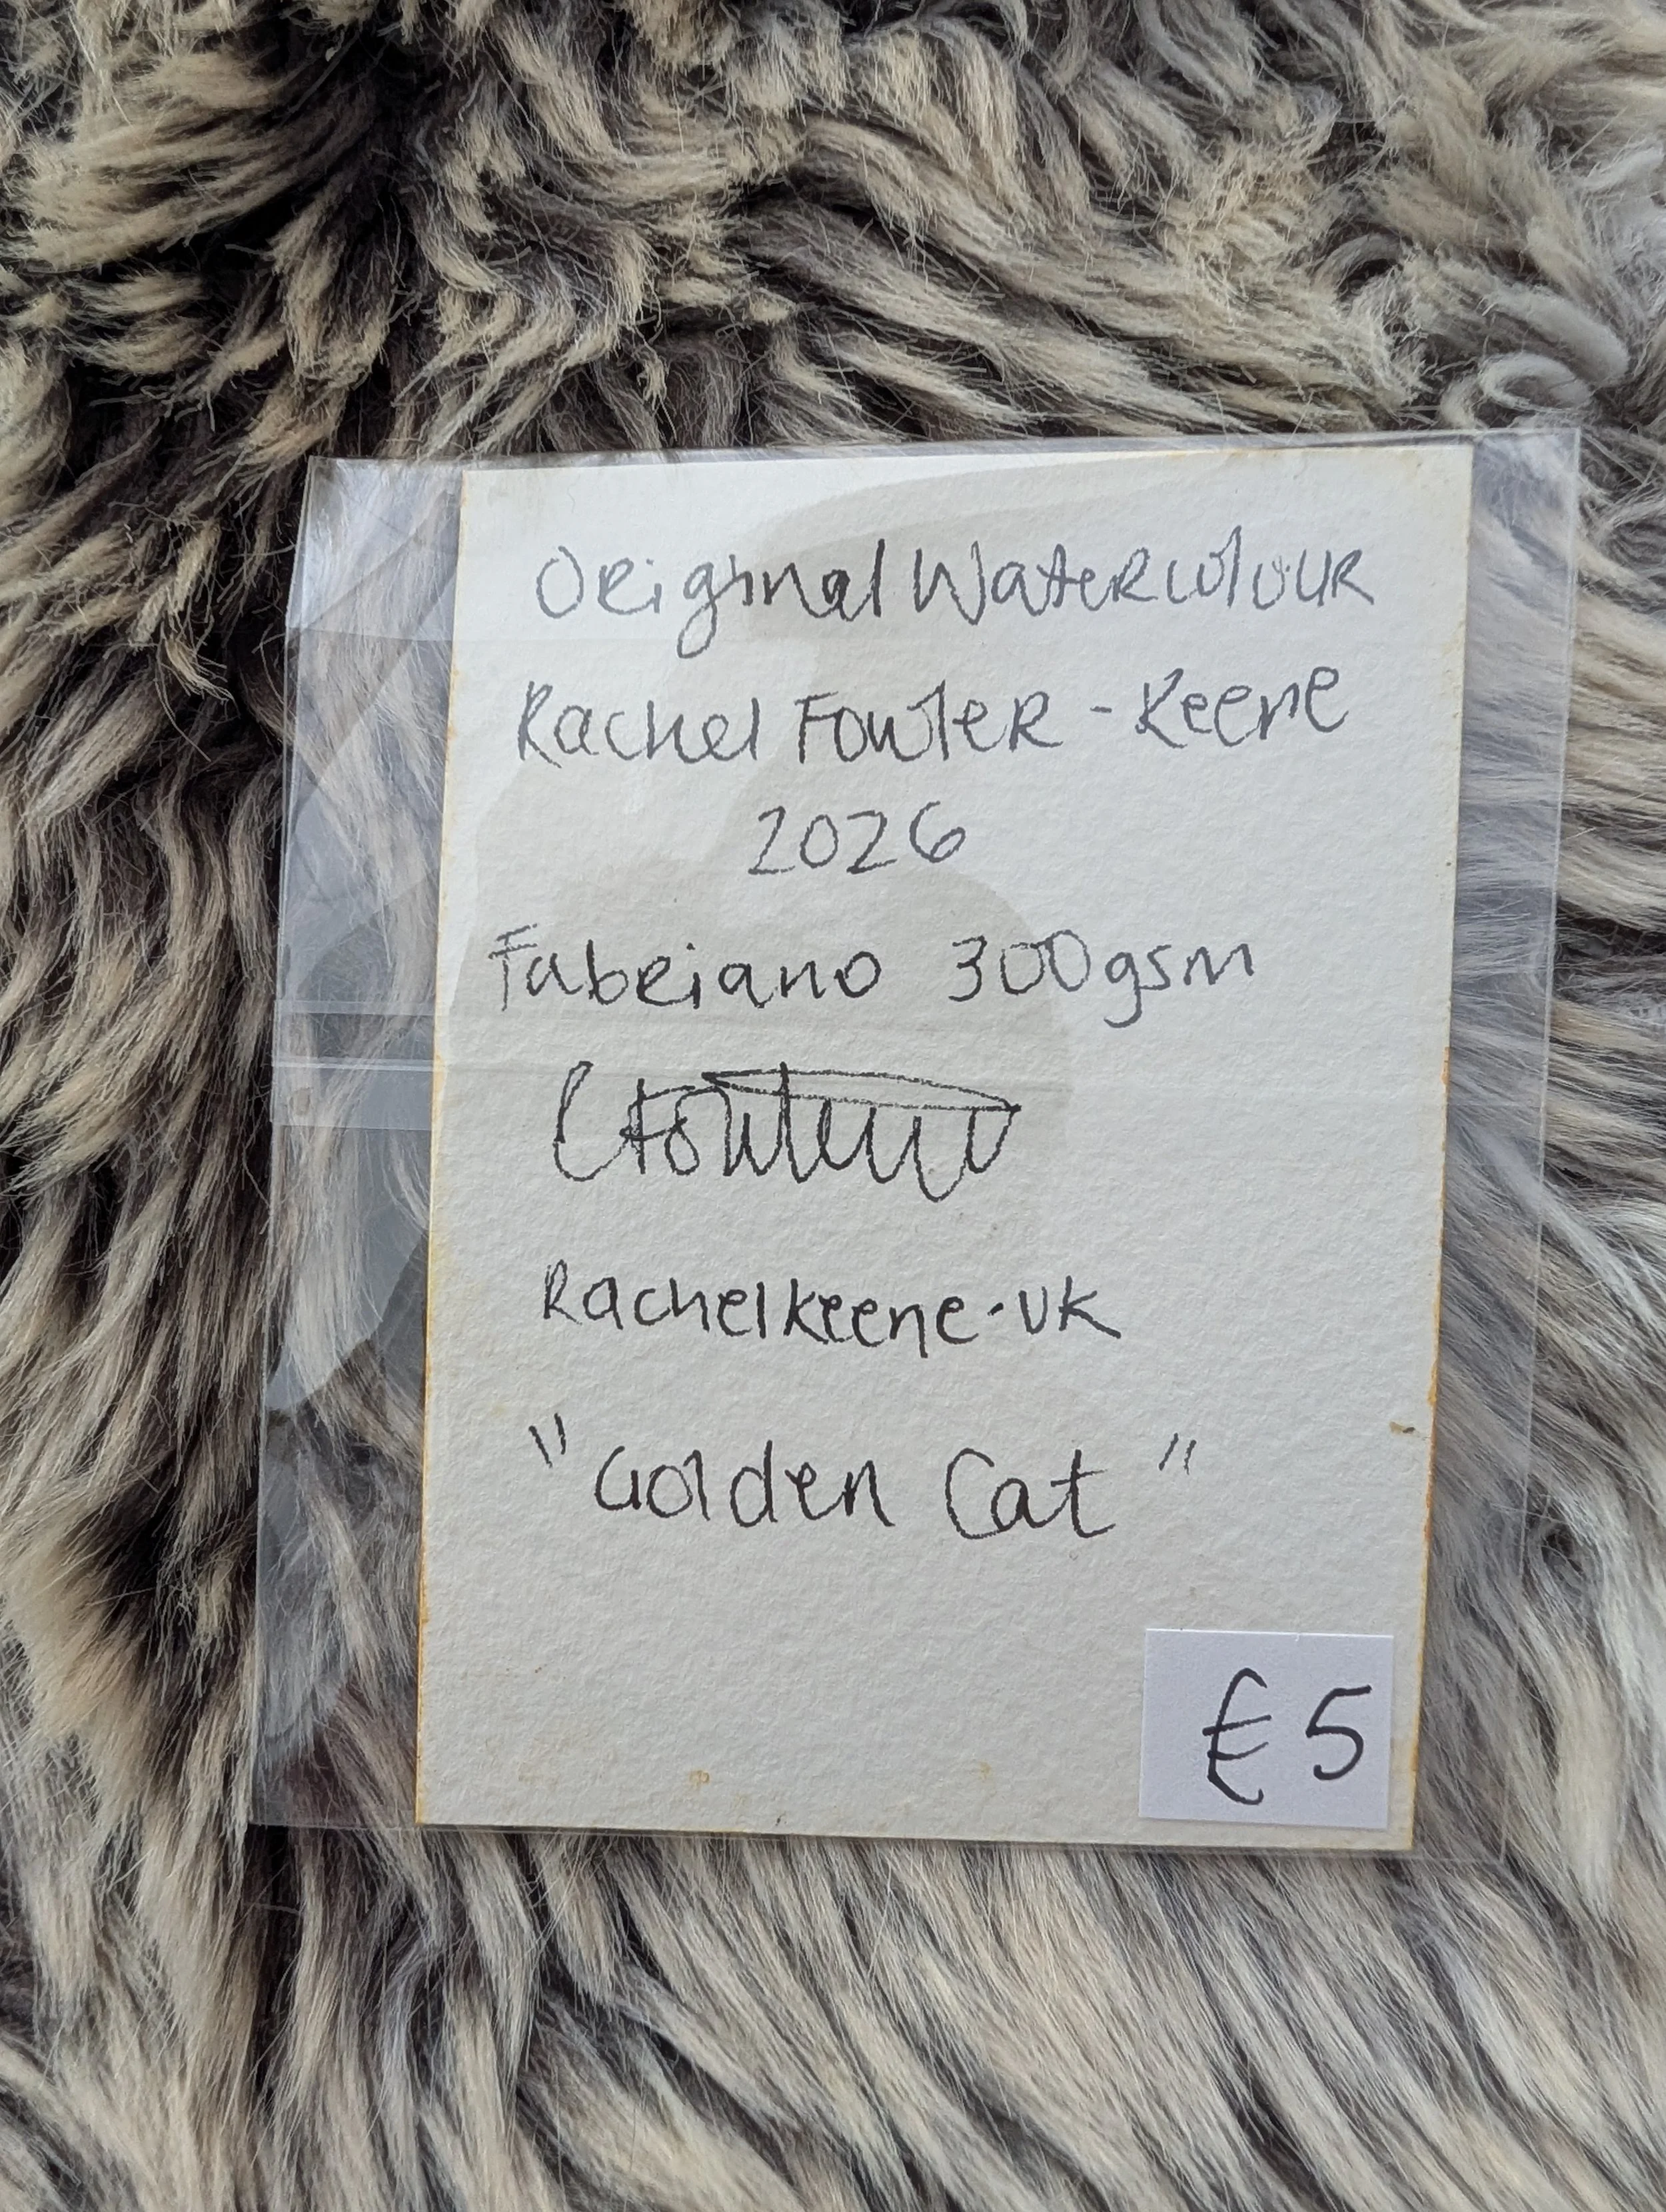 Original Watercolour
Rachel Fowler-Keene
2026
Fabriano 300gsm
Rachelkeene.uk
"Golden Cat"
€5